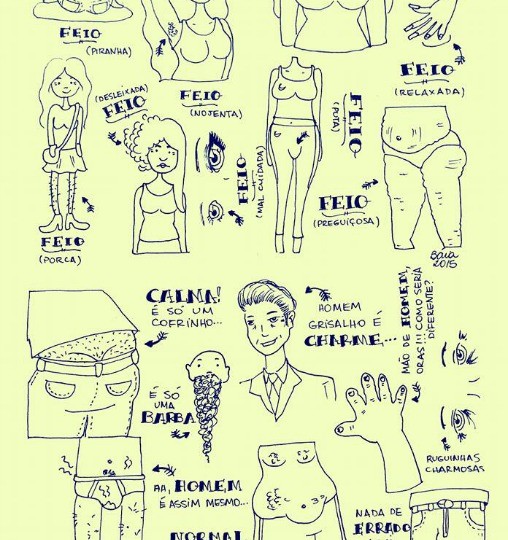 FEIO
(PIRANHA)
FEIO
(NOJENTA)
FEIO
(RELAXADA)
(DESLEIXADA)
FEIO
FEIO
(MAL CUIDADA)
FEIO
(PUTA)
FEIO
(PREGUIÇOSA)
FEIO
(PORCA)
2015
CALMA!
É SÓ UM
COFRINHO...
HOMEM
GRISALHO É
CHARME...
MÃO DE HOMEM,
ORAS!!! COMO SERIA
DIFERENTE?
É SÓ
UMA
BARBA
RUGUINHAS
CHARMOSAS
AH, HOMEM
É ASSIM MESMO...
NORMAL
NADA DE
ERRADO